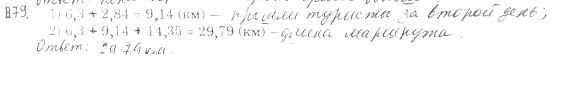 879. 1) 6,3 + 2,84 = 9,14 (км) — прошли туристы за второй день;
2) 6,3 + 9,14 + 14,35 = 29,79 (км) – длина маршрута.
Ответ: 29,79 км.